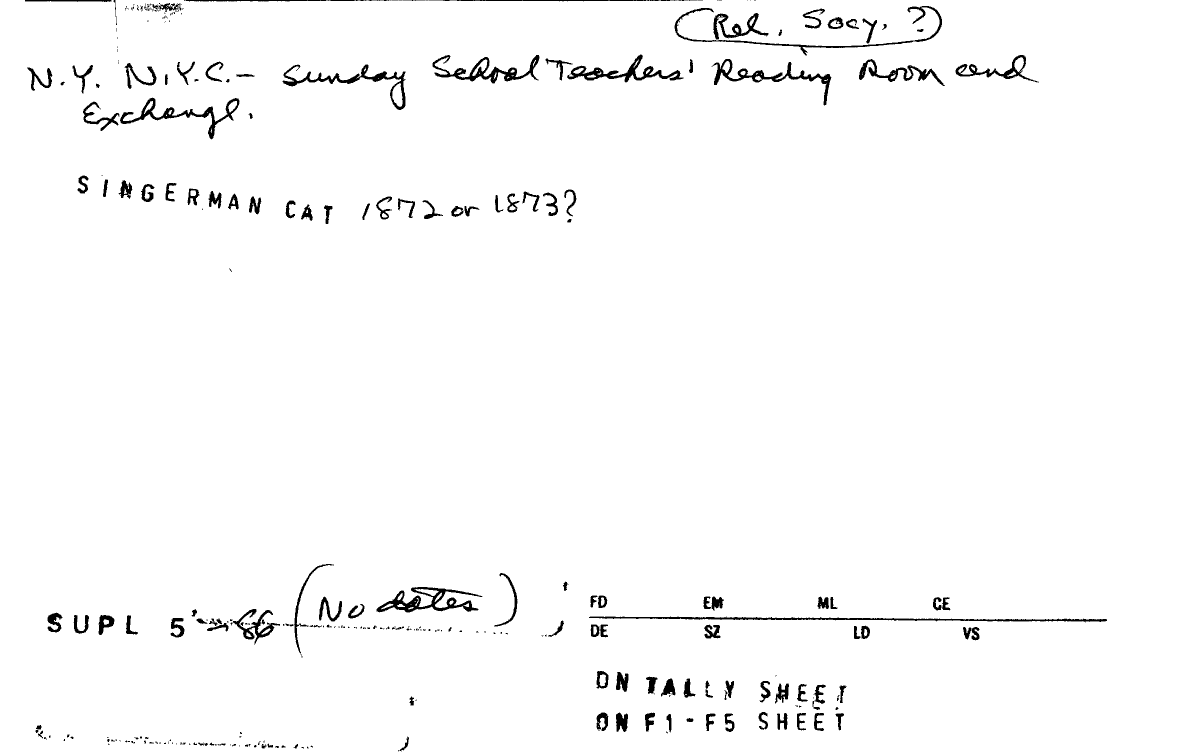 (Rel. Socy. ?)
N.Y. N.Y.C.- Sunday School Teachers' Reading Room and
Exchange.
SINGERMAN CAT 1872 or 1873?
SUPL 5 66 (No dates) ;
FD EM ML CE
DE SZ LD VS
ON TALLY SHEET
ON F1-F5 SHEET